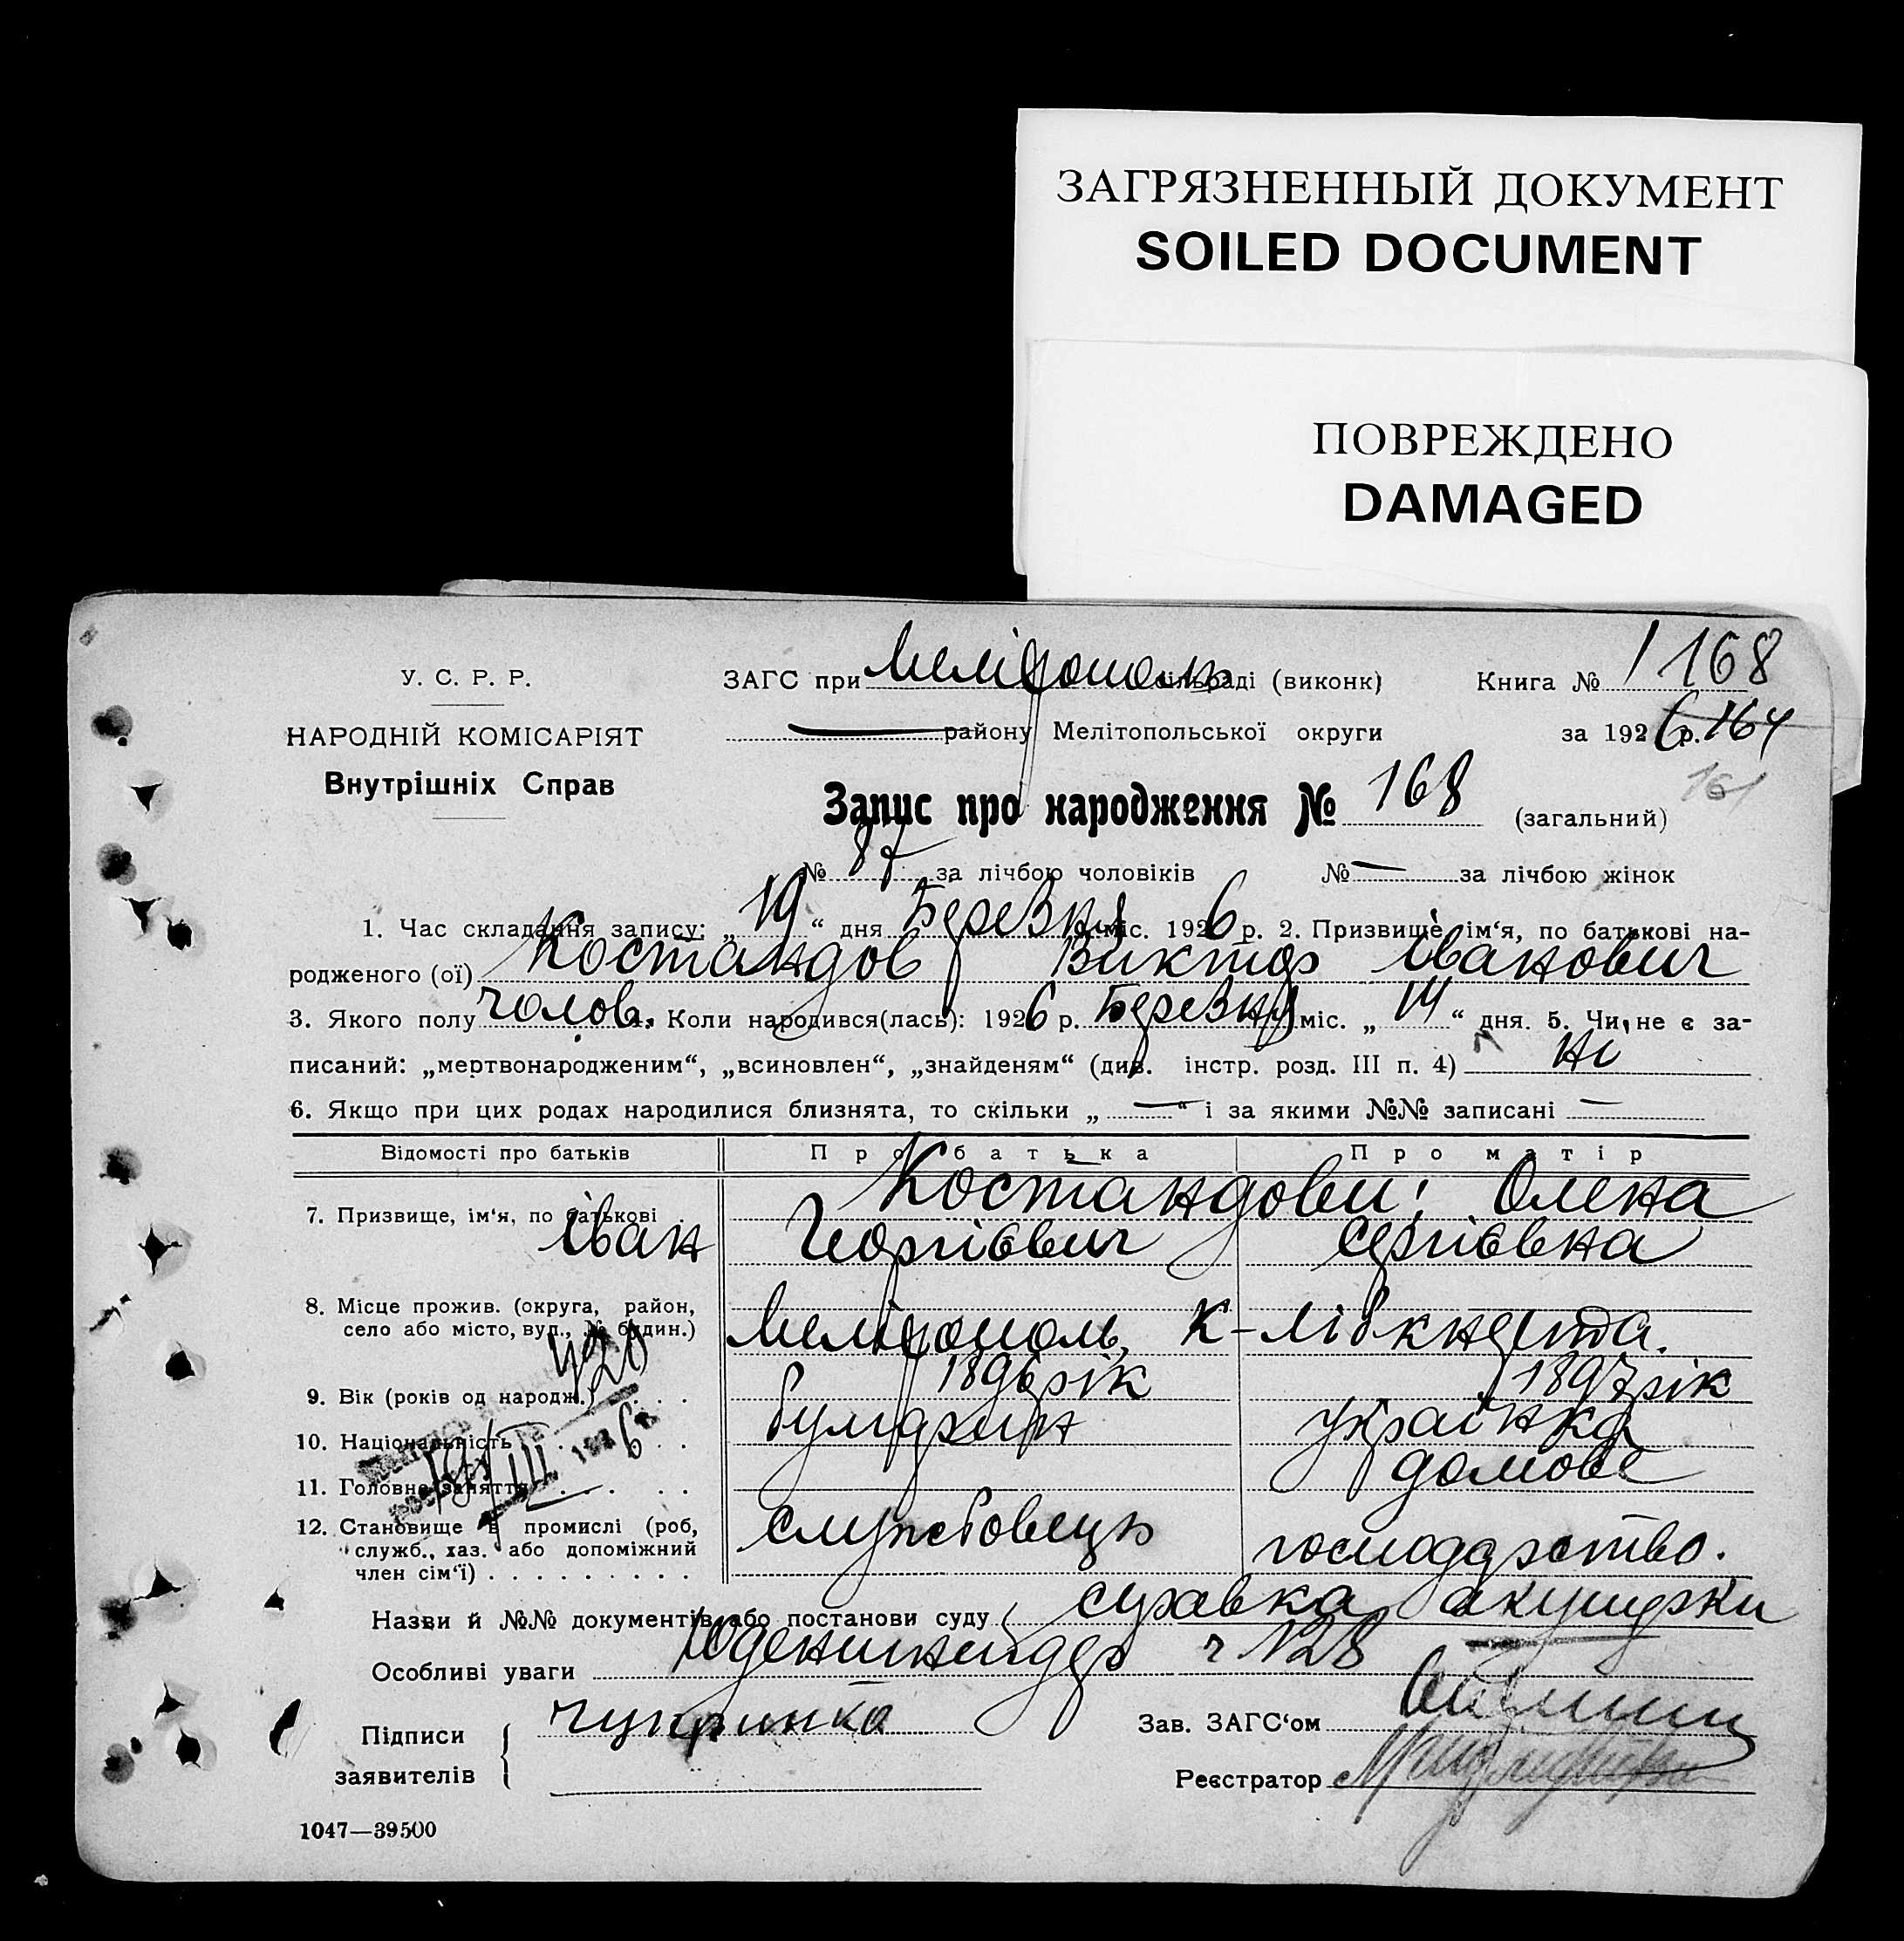 ЗАГРЯЗНЕННЫЙ ДОКУМЕНТ
SOILED DOCUMENT
ПОВРЕЖДЕНО
DAMAGED
У. С. Р. Р.
НАРОДНІЙ КОМІСАРІЯТ
Внутрішніх Справ
ЗАГС при Мелітополь сільраді (виконк) Книга № 1 168
— району Мелітопольської округи за 1926 р. 164
161
Запис про народження № 168 (загальний)
№ 87 за лічбою чоловіків № — за лічбою жінок
1. Час складання запису: „19“ дня Березня міс. 1926 р. 2. Призвище ім‘я, по батькові на-
родженого (ої) Костандов Виктор Іванович
3. Якого полу чолов. 4. Коли народився(лась): 1926 р. Березня міс. „14“ дня. 5. Чи не є за-
писаний: „мертвонародженим“, „всиновлен“, „знайденям“ (див. інстр. розд. III п. 4) ні
6. Якщо при цих родах народилися близнята, то скільки „ — “ і за якими №№ записані —
Відомості про батьків Про батька Про матір
Костандови: Олена
7. Призвище, ім‘я, по батькові
Іван Георгієвич Сергієвна
8. Місце прожив. (округа, район,
село або місто, вул., № будин.) Мелітополь, К-Лібкнехта.
420
9. Вік (років од народж.) . . . 1896 рік 1897 рік
10. Національність . . . . . булгарин українка
19/III 1926 р.
11. Головне заняття . . . . . домове
12. Становище в промислі (роб, службовець господарство.
служб., хаз. або допоміжний
член сім‘ї) . . . . . . . . .
Назви й №№ документів або постанови суду справка акушерки
Особливі уваги ч №28
Підписи
заявителів
Зав. ЗАГС‘ом
Реєстратор
1047—39500